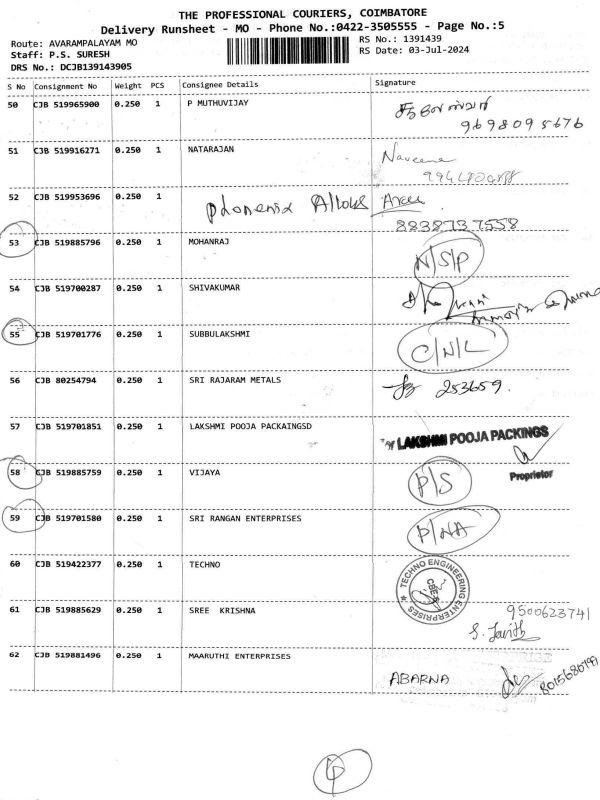 THE PROFESSIONAL COURIERS, COIMBATORE
Delivery Runsheet - MO - Phone No.:0422-3505555 - Page No.:5
Route: AVARAMPALAYAM MO
RS No.: 1391439
Staff: P.S. SURESH
RS Date: 03-Jul-2024
DRS No.: DCJB139143905
S No Consignment No Weight PCS Consignee Details Signature
50 CJB 519965900 0.250 1 P MUTHUVIJAY
9698095676
51 CJB 519916271 0.250 1 NATARAJAN Naveena
52 CJB 519953696 0.250 1 Alloys
8838737558
53 CJB 519885796 0.250 1 MOHANRAJ N/S/P
54 CJB 519700287 0.250 1 SHIVAKUMAR
55 CJB 519701776 0.250 1 SUBBULAKSHMI C/N/L
56 CJB 80254794 0.250 1 SRI RAJARAM METALS 253659.
57 CJB 519701851 0.250 1 LAKSHMI POOJA PACKAINGSD
LAKSHMI POOJA PACKINGS
Proprietor
58 CJB 519885759 0.250 1 VIJAYA P/S
59 CJB 519701580 0.250 1 SRI RANGAN ENTERPRISES P/NA
60 CJB 519422377 0.250 1 TECHNO
TECHNO ENGINEERING ENTERPRISES
61 CJB 519885629 0.250 1 SREE KRISHNA 9500623741
62 CJB 519881496 0.250 1 MAARUTHI ENTERPRISES
ABARNA